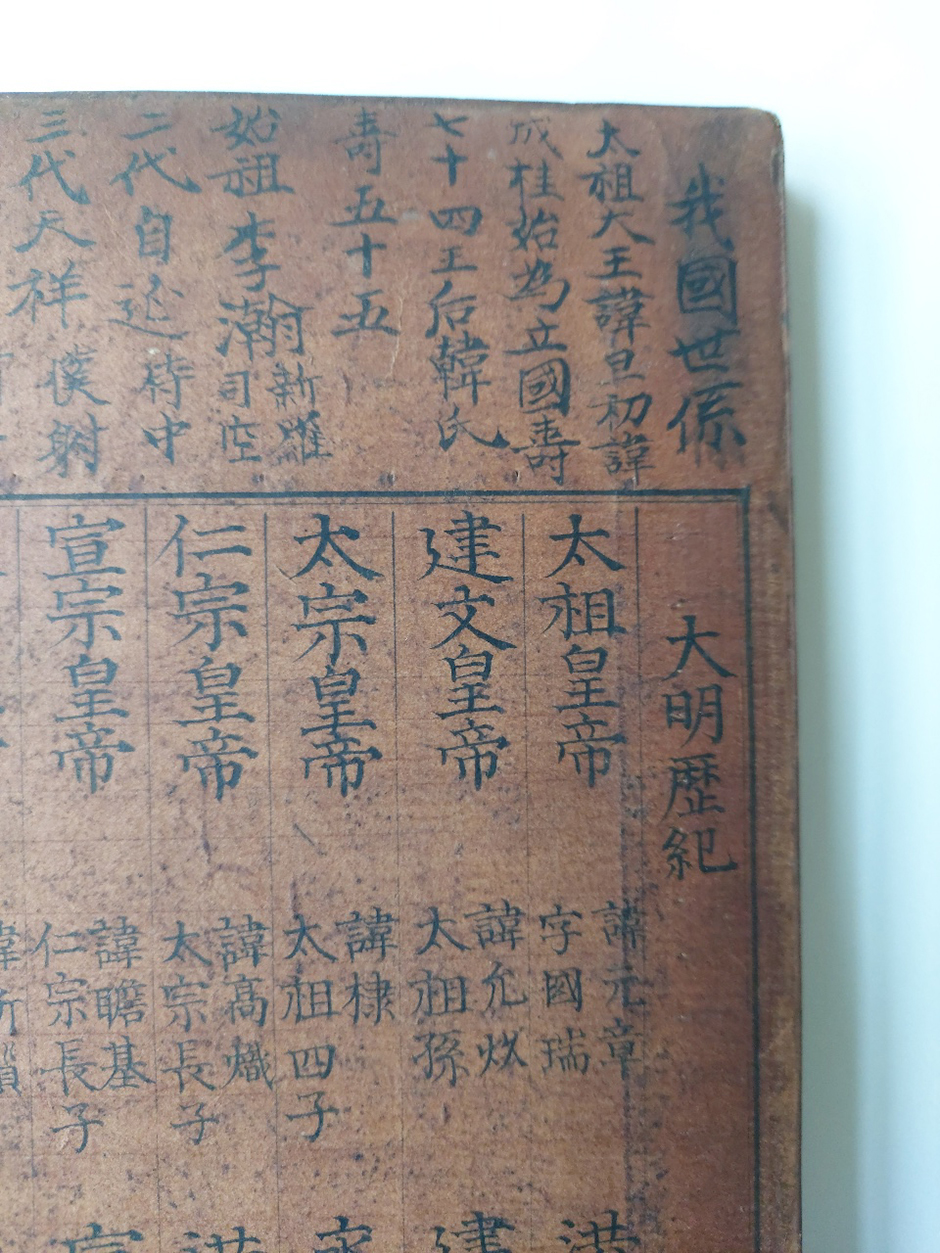 我國世係
太祖大王諱旦初諱
成桂始為立國壽
七十四王后韓氏
壽五十五
始祖李瀚新羅
司空
二代自延侍中
三代天祥僕射
大明歷紀
太祖皇帝
諱元章
字國瑞
建文皇帝
諱允炆
太祖孫
太宗皇帝
諱棣
太祖四子
仁宗皇帝
諱高熾
太宗長子
宣宗皇帝
諱瞻基
仁宗長子